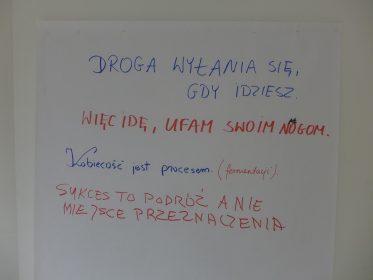 DROGA WYŁANIA SIĘ,
GDY IDZIESZ.
WIĘC IDĘ, UFAM SWOIM NOGOM.
Kobiecość jest procesem. (fermentacji)
SYKCES TO PODRÓŻ A NIE
MIEJSCE PRZEZNACZENIA